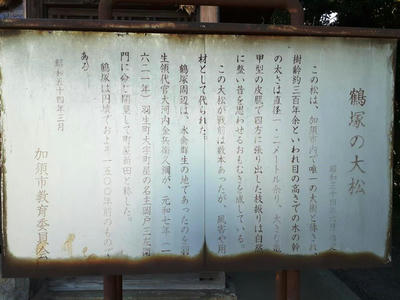 鶴塚の大松
昭和三十四年
この松は、加須市内で唯一の大樹と称され、
樹齢約三百年余といわれ目の高さでの木の幹
の太さは直径一・二メートル余り、大きな亀
甲型の皮肌で四方に張り出した枝振りは自然
に整い昔を思わせるおもむきを成している。
この大松が戦前は数本あったが、風害や用
材として伐られた。
鶴塚周辺は、水禽群生の地であったのを羽
生領代官大河内金兵衛久綱が、元和七年(一
六二一年)羽生町大字町屋の名主岡戸三左衛
門に命じ開墾して町屋新田と称した。
鶴塚は円墳でおよそ一五〇〇年前のもので
ある。
昭和五十四年三月
加須市教育委員会